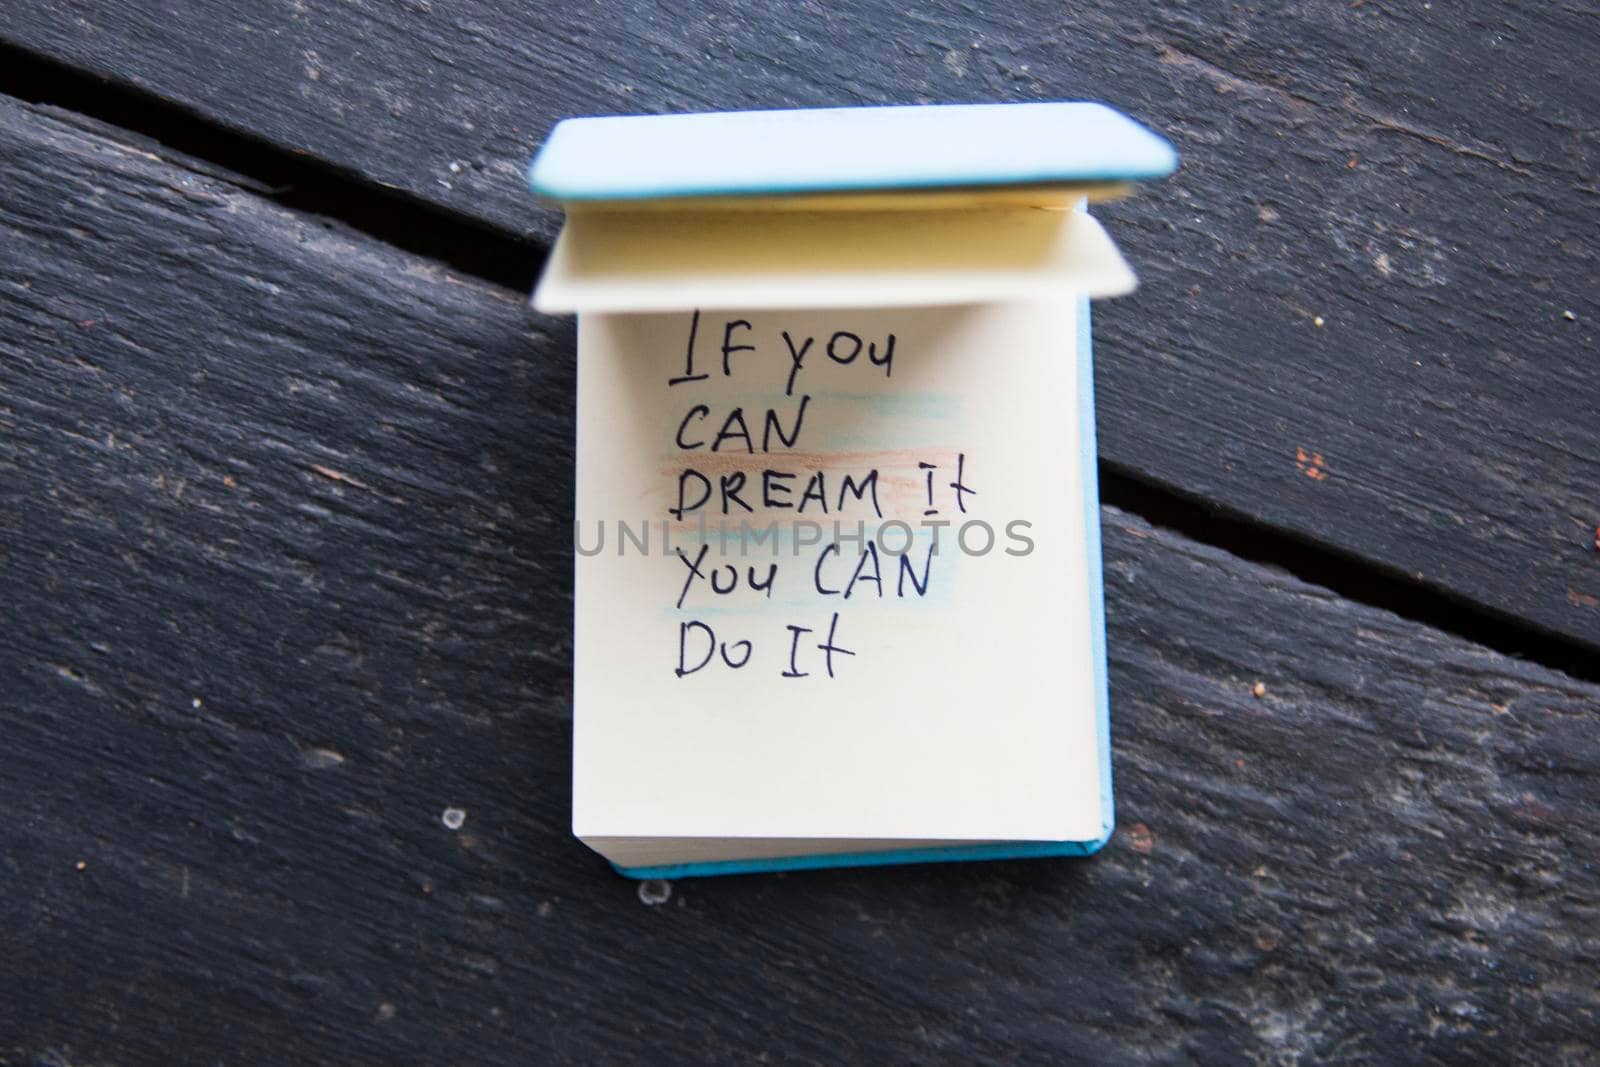 If you
CAN
DREAM It
UNLIIMPHOTOS
You CAN
Do It